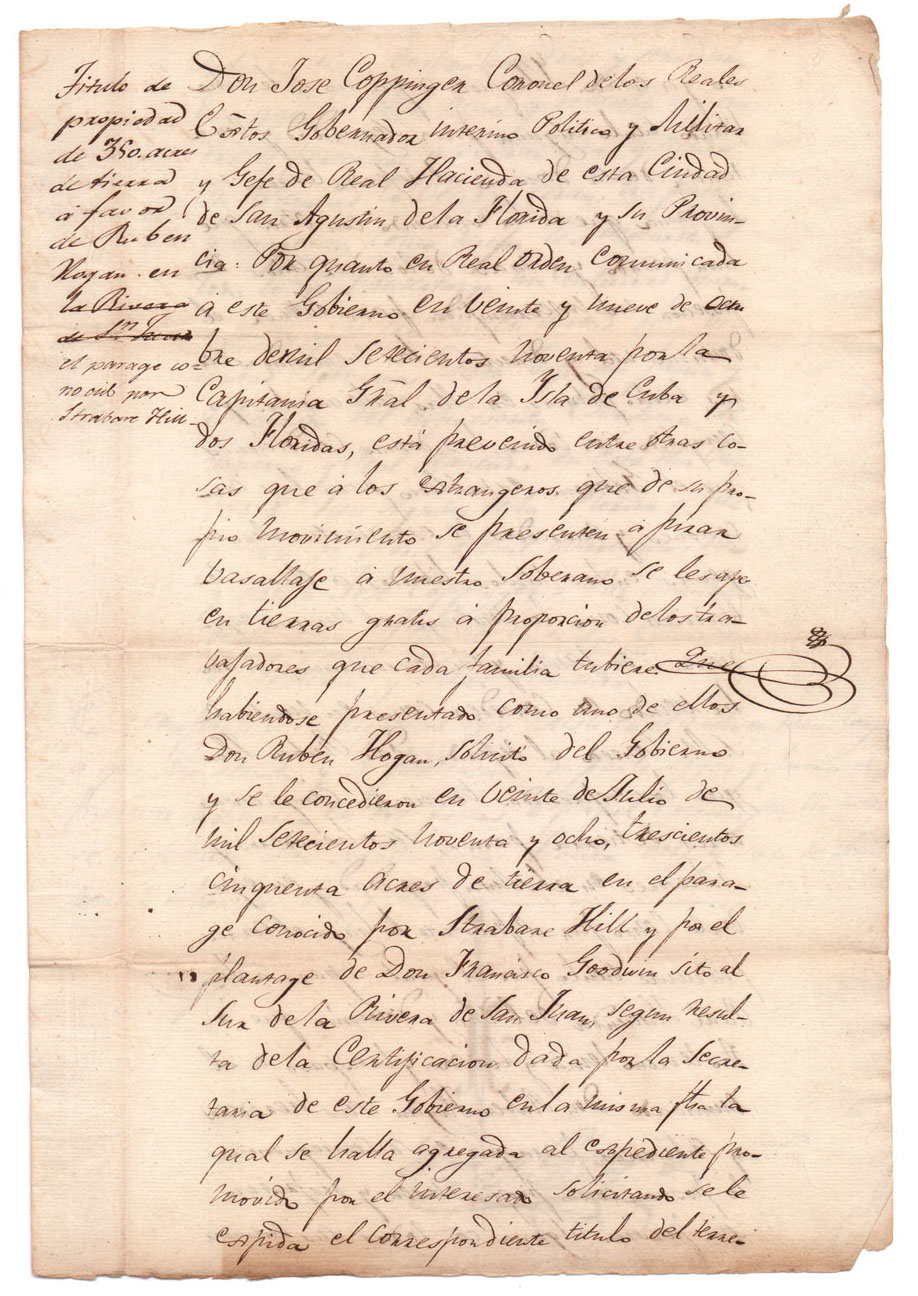 Titulo de
propiedad
de 350. acres
de tierra
á favor
de Ruben
Hogan. en
la Rivera
de Sn. Juan
el parage co-
nocido por
Strabare Hill-
Don Jose Coppinger Coronel delos Reales
Extos Gobernador interino Politico y Militar
y Gefe de Real Hacienda de esta Ciudad
de San Agustin dela Florida y su Provin-
cia: Por quanto en Real orden comunicada
á este Gobierno en veinte y nueve de octu
bre demil setecientos noventa por la
Capitania Gral. de la Isla de Cuba y
dos Floridas, está prevenido entre otras co-
sas que á los estrangeros que de su pro-
pio movimiento se presenten á jurar
vasallaje á nuestro Soberano se les
en tierras gratis á proporcion delostra-
vajadores que cada familia tubiere. Que
habiendose presentado como uno de ellos
Don Ruben Hogan, solicitó del Gobierno
y se le concedieron en veinte de Julio de
mil setecientos noventa y ocho, trescientos
cinquenta acres de tierra en el para-
ge conocido por Strabare Hill y por el
plantage de Don Francisco Goodwin sito al
Sur de la Rivera de San Juan, segun resul-
ta dela Certificacion dada por la Secre-
taria de este Gobierno en la misma fha la
qual se halla agregada al espediente pro-
movido por el interesado solicitando sele
espida el correspondiente titulo del terre-